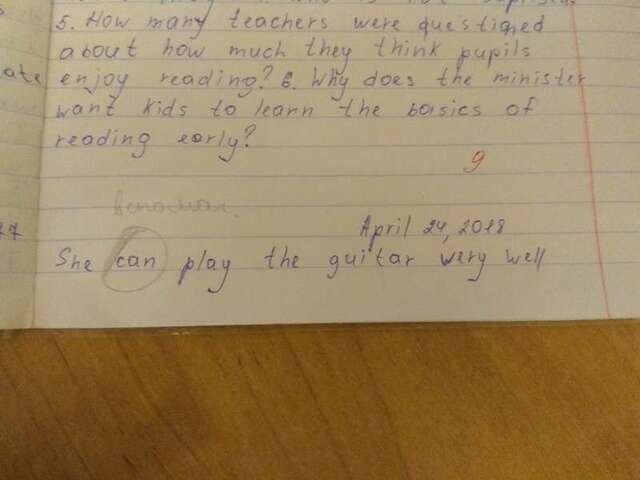 5. How many teachers were questioned
about how much they think pupils
ate
enjoy reading? 6. Why does the minister
want kids to learn the basics of
reading early?
9
April 24, 2018
She can play the guitar wery well